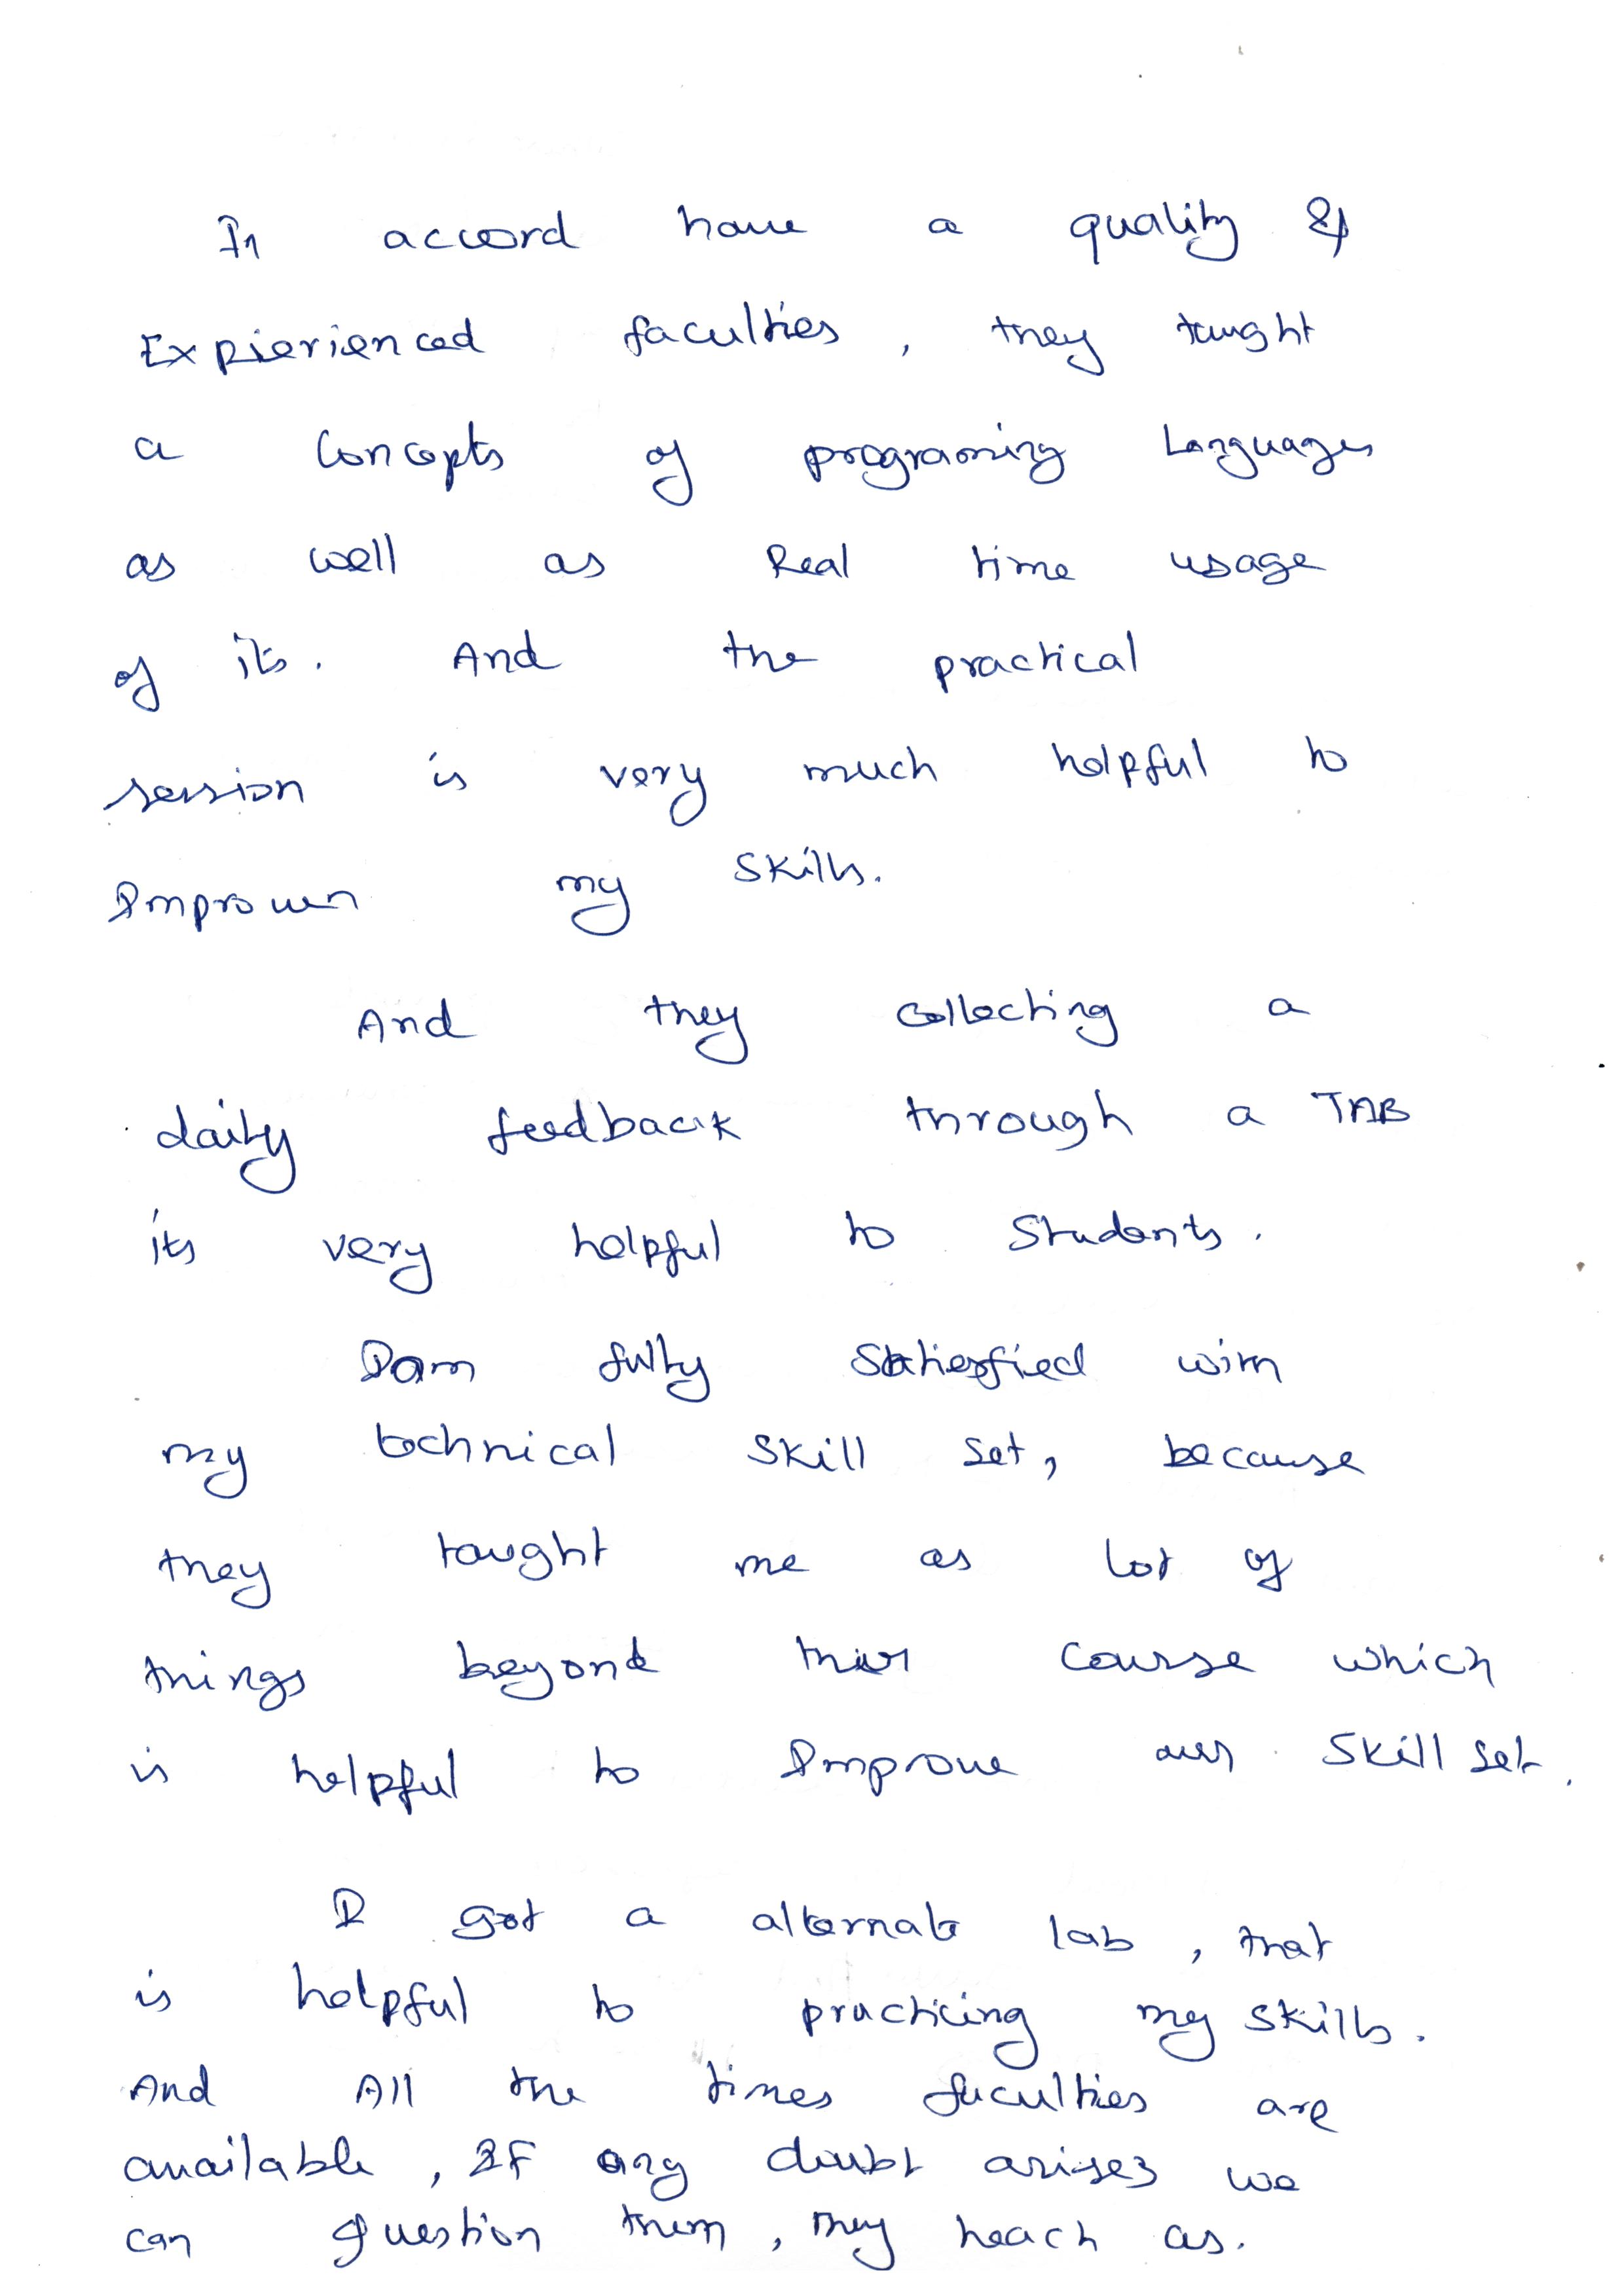 In accord have a quality &
Expierienced faculties, they taught
a Concepts of programing Languages
as well as Real time usage
of its. And the practical
session is very much helpful to
Improven my skills.
And they collecting a
daily feedback through a TAB
its very helpful to Students.
I am fully Satiesfied with
my technical skill set, because
they taught me as lot of
things beyond this course which
is helpful to Improve our skill set.
I got a alternate lab, that
is helpful to practicing my skills.
And All the times faculties are
available, If any doubt arises we
can question them, they teach as.